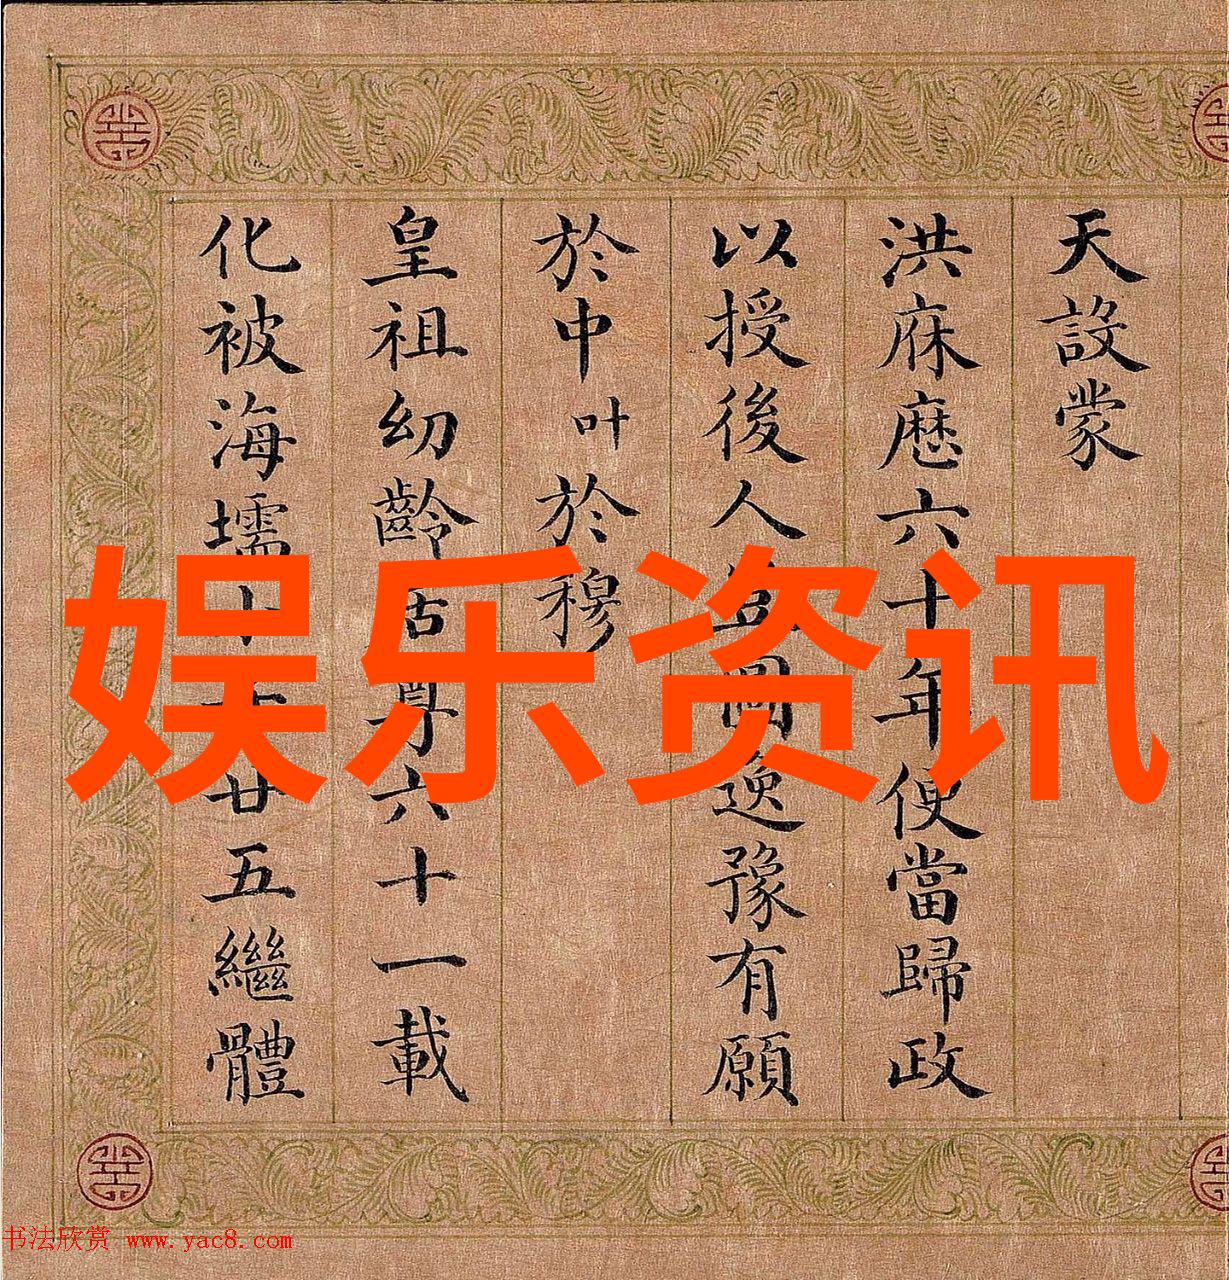 天設蒙
洪庥歷六十年便當歸政
以授後人 圖逸豫有願
於中叶於穆
皇祖幼齡 尊六十一載
化被海壖十 廿五繼體
娱乐资讯
书法欣赏 www.yac8.com